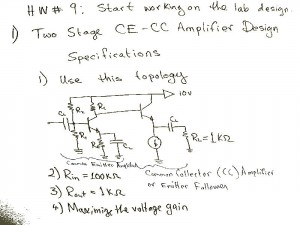 HW# 9: Start working on the lab design.
1) Two Stage CE-CC Amplifier Design
Specifications
1) Use this topology
10V
R1
Rc
C1
CL
RL=1KΩ
R2
RE
CE
Common Emitter Amplifier
Common Collector (CC) Amplifier
or Emitter Follower
2) Rin = 100KΩ
3) Rout = 1KΩ
4) Maximize the voltage gain